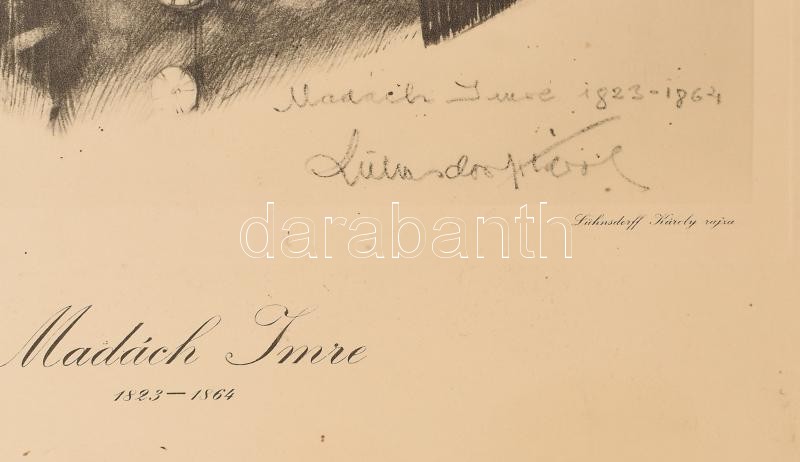 Madách Imre 1823-1864
Lühnsdorff Károly
Lühnsdorff Károly rajza
darabanth
Madách Imre
1823—1864